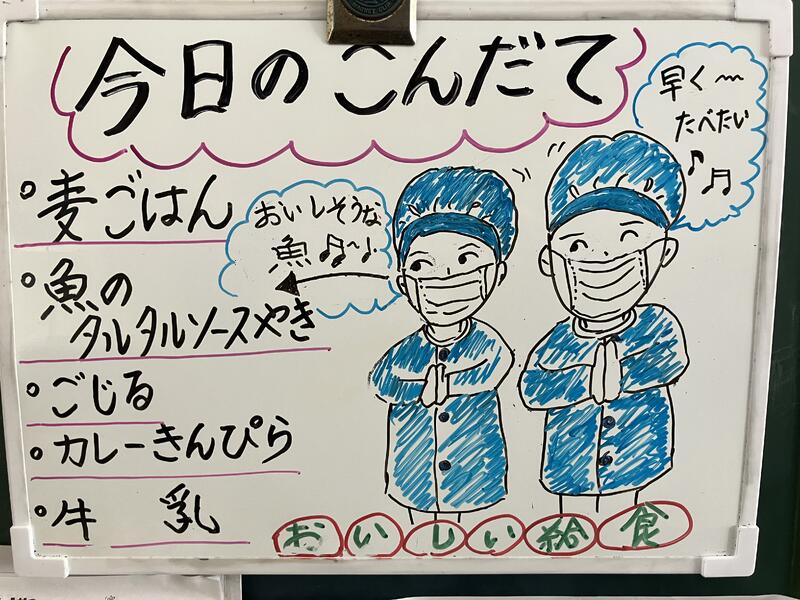 今日のこんだて
早く〜
たべたい
♪♬
。麦ごはん
おいしそうな
魚♬〜♩
。魚の
タルタルソースやき
。ごじる
。カレーきんぴら
。牛 乳
おいしい給食